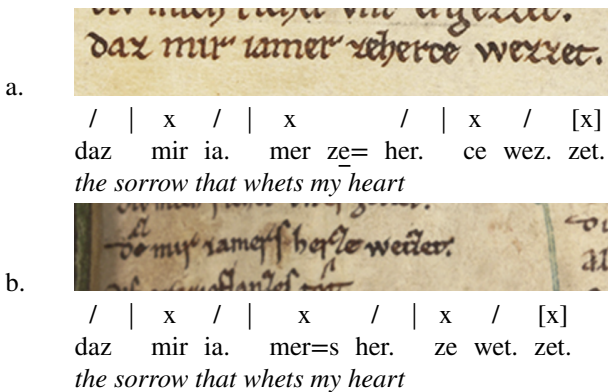 daz mir iamer zeherce wezzet.
a.
/ | x / | x / | x / [x]
daz mir ia. mer ze= her. ce wez. zet.
the sorrow that whets my heart
mir iamers herze
b.
/ | x / | x / | x / [x]
daz mir ia. mer=s her. ze wet. zet.
the sorrow that whets my heart